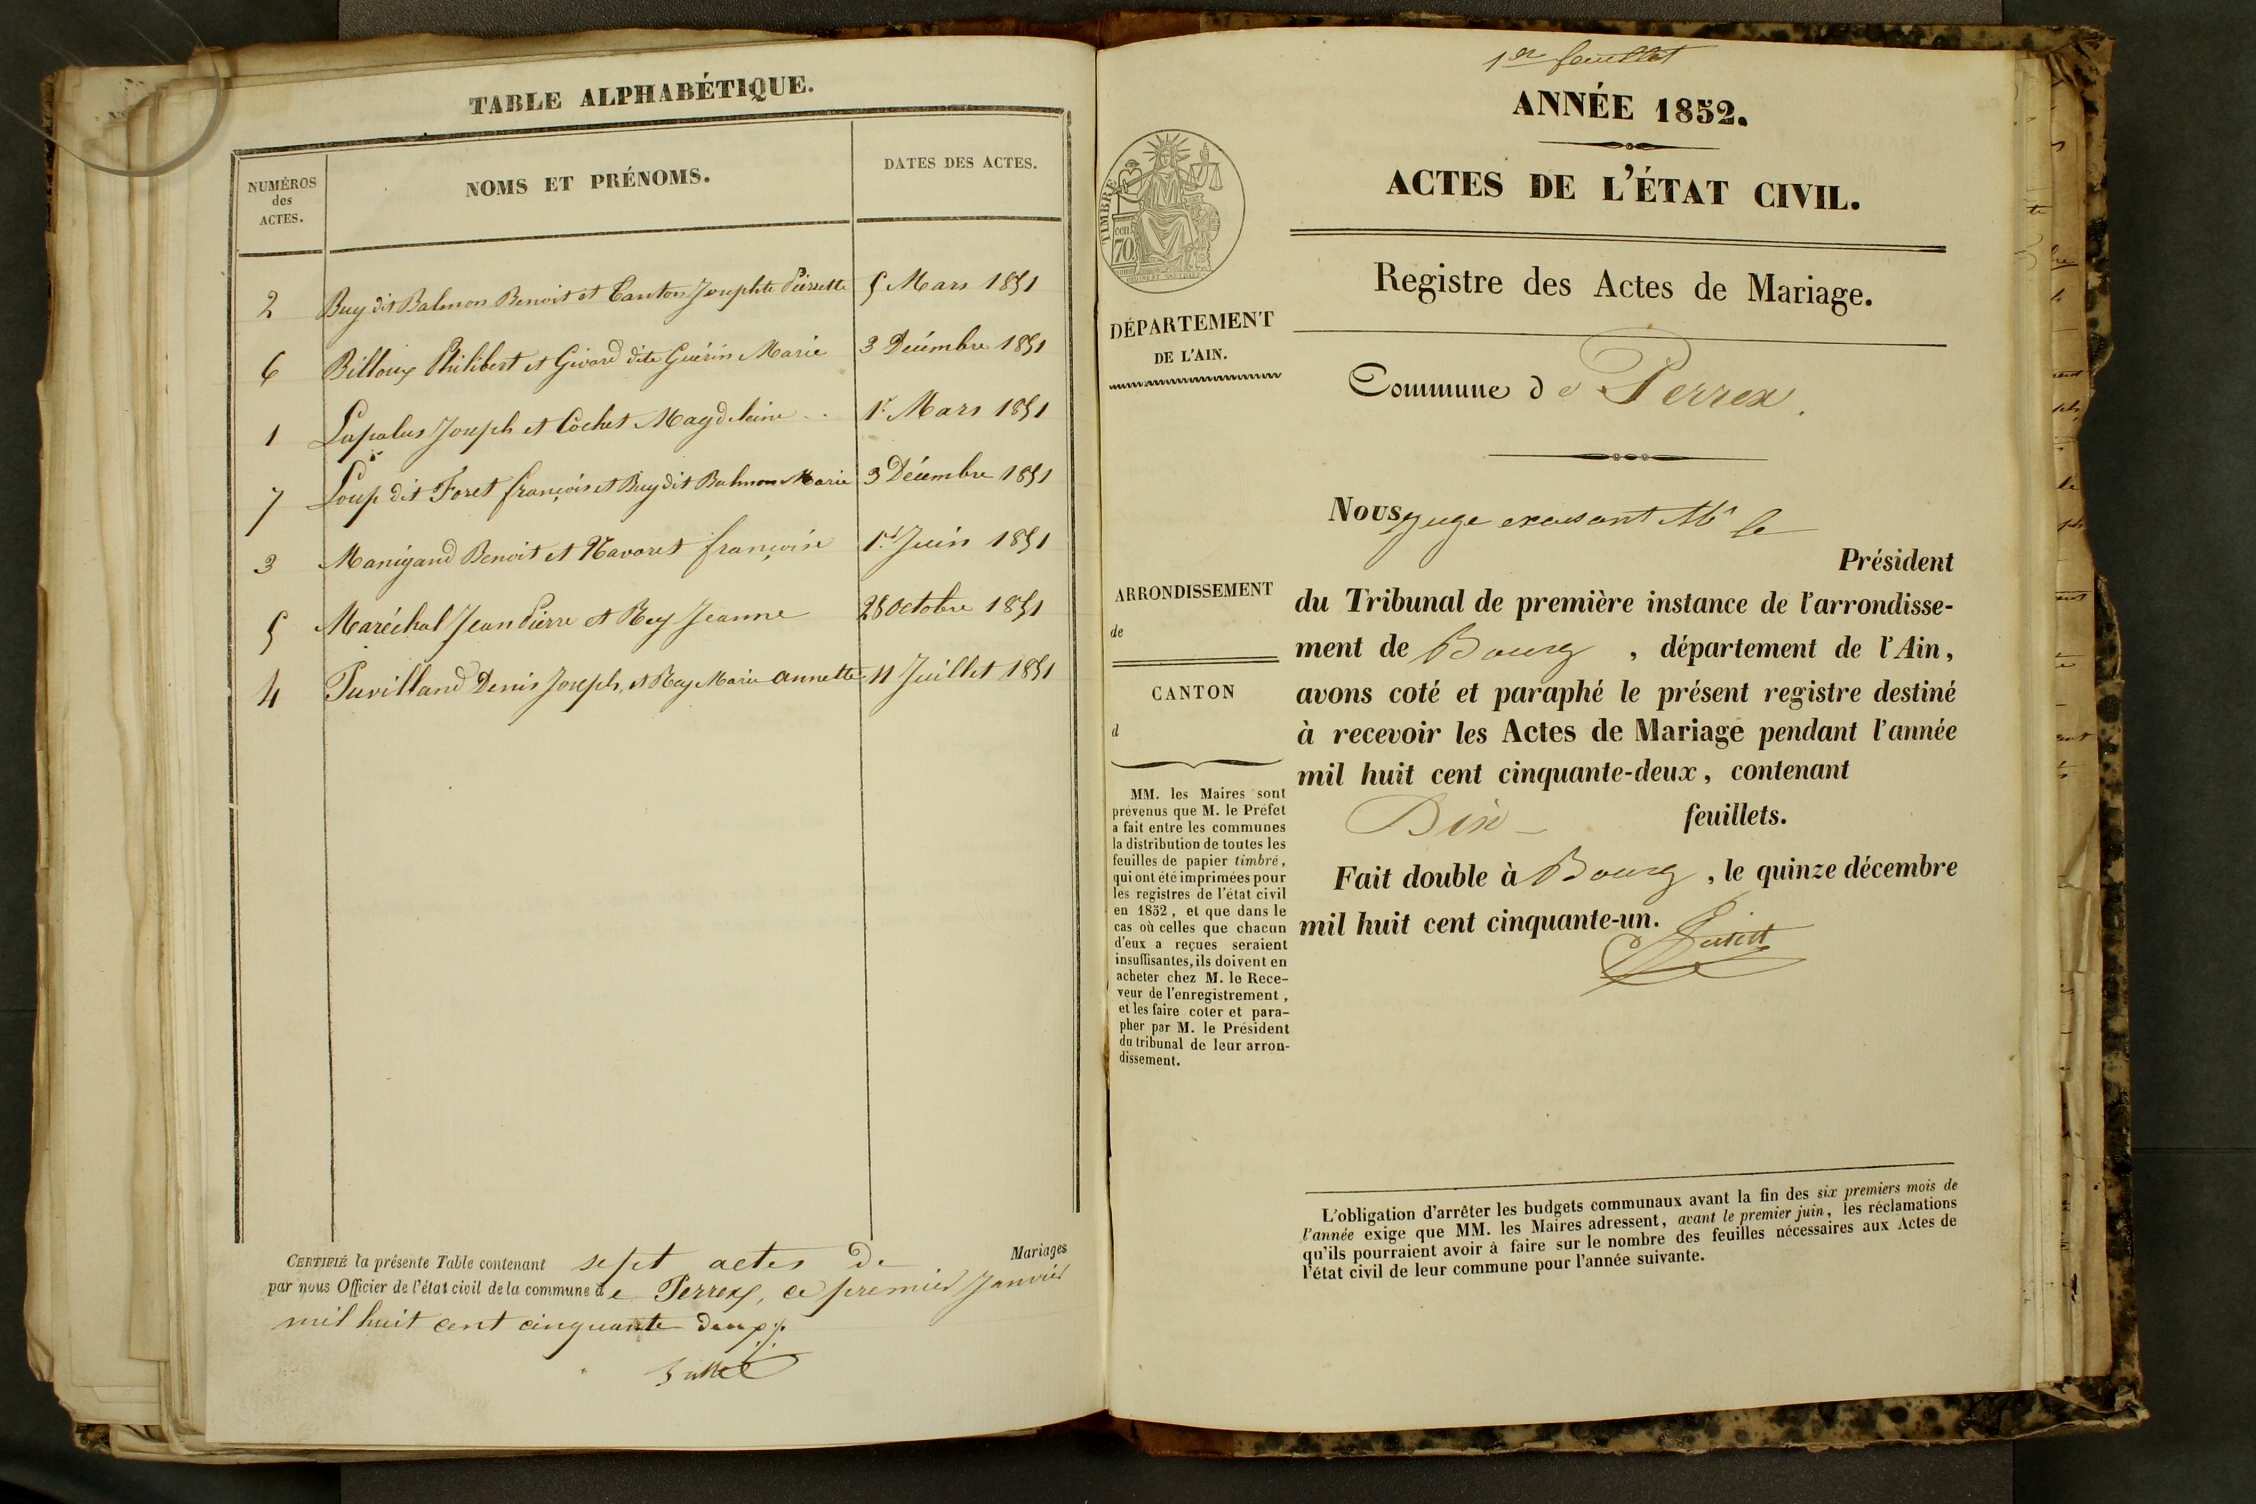 TABLE ALPHABÉTIQUE.
NUMÉROS
des
ACTES.
NOMS ET PRÉNOMS.
DATES DES ACTES.
2 Buy dit Balmon Benoit et Canton Josephte Pierrette 5 Mars 1851
6 Billoux Philibert et Givord dite Guérin Marie 3 Décembre 1851
1 Lapalus Joseph et Cochet Magdeleine 1er Mars 1851
7 Loup dit Foret françois et Buy dit Balmon Marie 3 Décembre 1851
3 Manigand Benoit et Navoret françoise 1er Juin 1851
5 Maréchal Jean Pierre et Rey Jeanne 28 Octobre 1851
4 Puvilland Denis Joseph, et Rey Marie annette 11 Juillet 1851
CERTIFIÉ la présente Table contenant sept actes de Mariages
par nous Officier de l'état civil de la commune de Perrex, ce premier Janvier
mil huit cent cinquante deux
1er feuillet
ANNÉE 1852.
ACTES DE L'ÉTAT CIVIL.
Registre des Actes de Mariage.
TIMBRE
70
DÉPARTEMENT
DE L'AIN.
Commune de Perrex.
Nous, juge exerçant Mr le
Président
ARRONDISSEMENT
de
CANTON
d
du Tribunal de première instance de l'arrondisse-
ment de Bourg, département de l'Ain,
avons coté et paraphé le présent registre destiné
à recevoir les Actes de Mariage pendant l'année
mil huit cent cinquante-deux, contenant
Dix feuillets.
Fait double à Bourg, le quinze décembre
mil huit cent cinquante-un.
MM. les Maires sont
prévenus que M. le Préfet
a fait entre les communes
la distribution de toutes les
feuilles de papier timbré,
qui ont été imprimées pour
les registres de l'état civil
en 1852, et que dans le
cas où celles que chacun
d'eux a reçues seraient
insuffisantes, ils doivent en
acheter chez M. le Rece-
veur de l'enregistrement,
et les faire coter et para-
pher par M. le Président
du tribunal de leur arron-
dissement.
L'obligation d'arrêter les budgets communaux avant la fin des six premiers mois de
l'année exige que MM. les Maires adressent, avant le premier juin, les réclamations
qu'ils pourraient avoir à faire sur le nombre des feuilles nécessaires aux Actes de
l'état civil de leur commune pour l'année suivante.